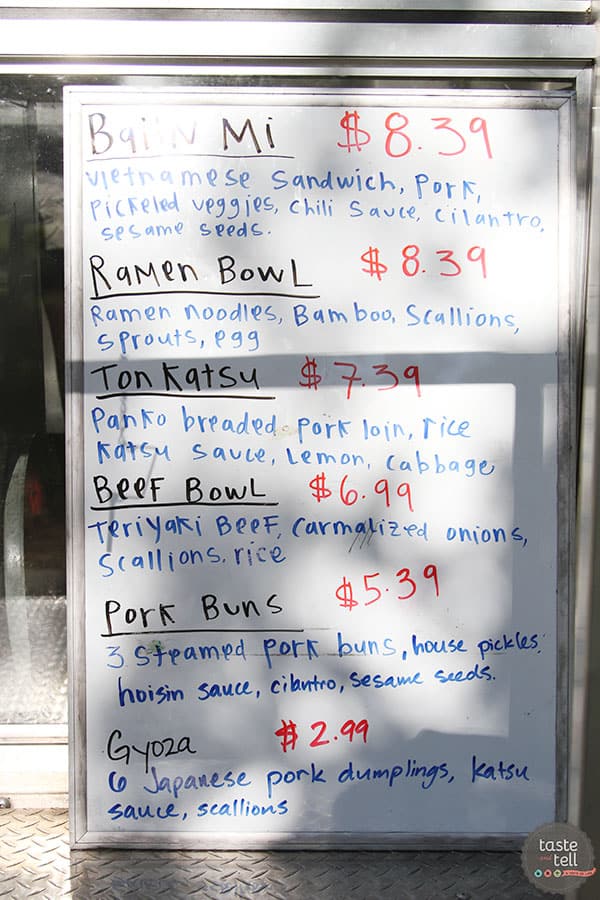 Bahn Mi $8.39
Vietnamese Sandwich, Pork,
Pickeled veggies, Chili Sauce, Cilantro,
sesame seeds.
Ramen Bowl $8.39
Ramen noodles, Bamboo, Scallions,
sprouts, egg
Tonkatsu $7.39
Panko breaded pork loin, rice
Katsu Sauce, Lemon, Cabbage
Beef Bowl $6.99
Teriyaki Beef, Carmalized onions,
Scallions, rice
Pork Buns $5.39
3 Steamed pork buns, house pickles,
hoisin sauce, cilantro, sesame seeds.
Gyoza $2.99
6 Japanese pork dumplings, Katsu
sauce, scallions
taste
and
tell